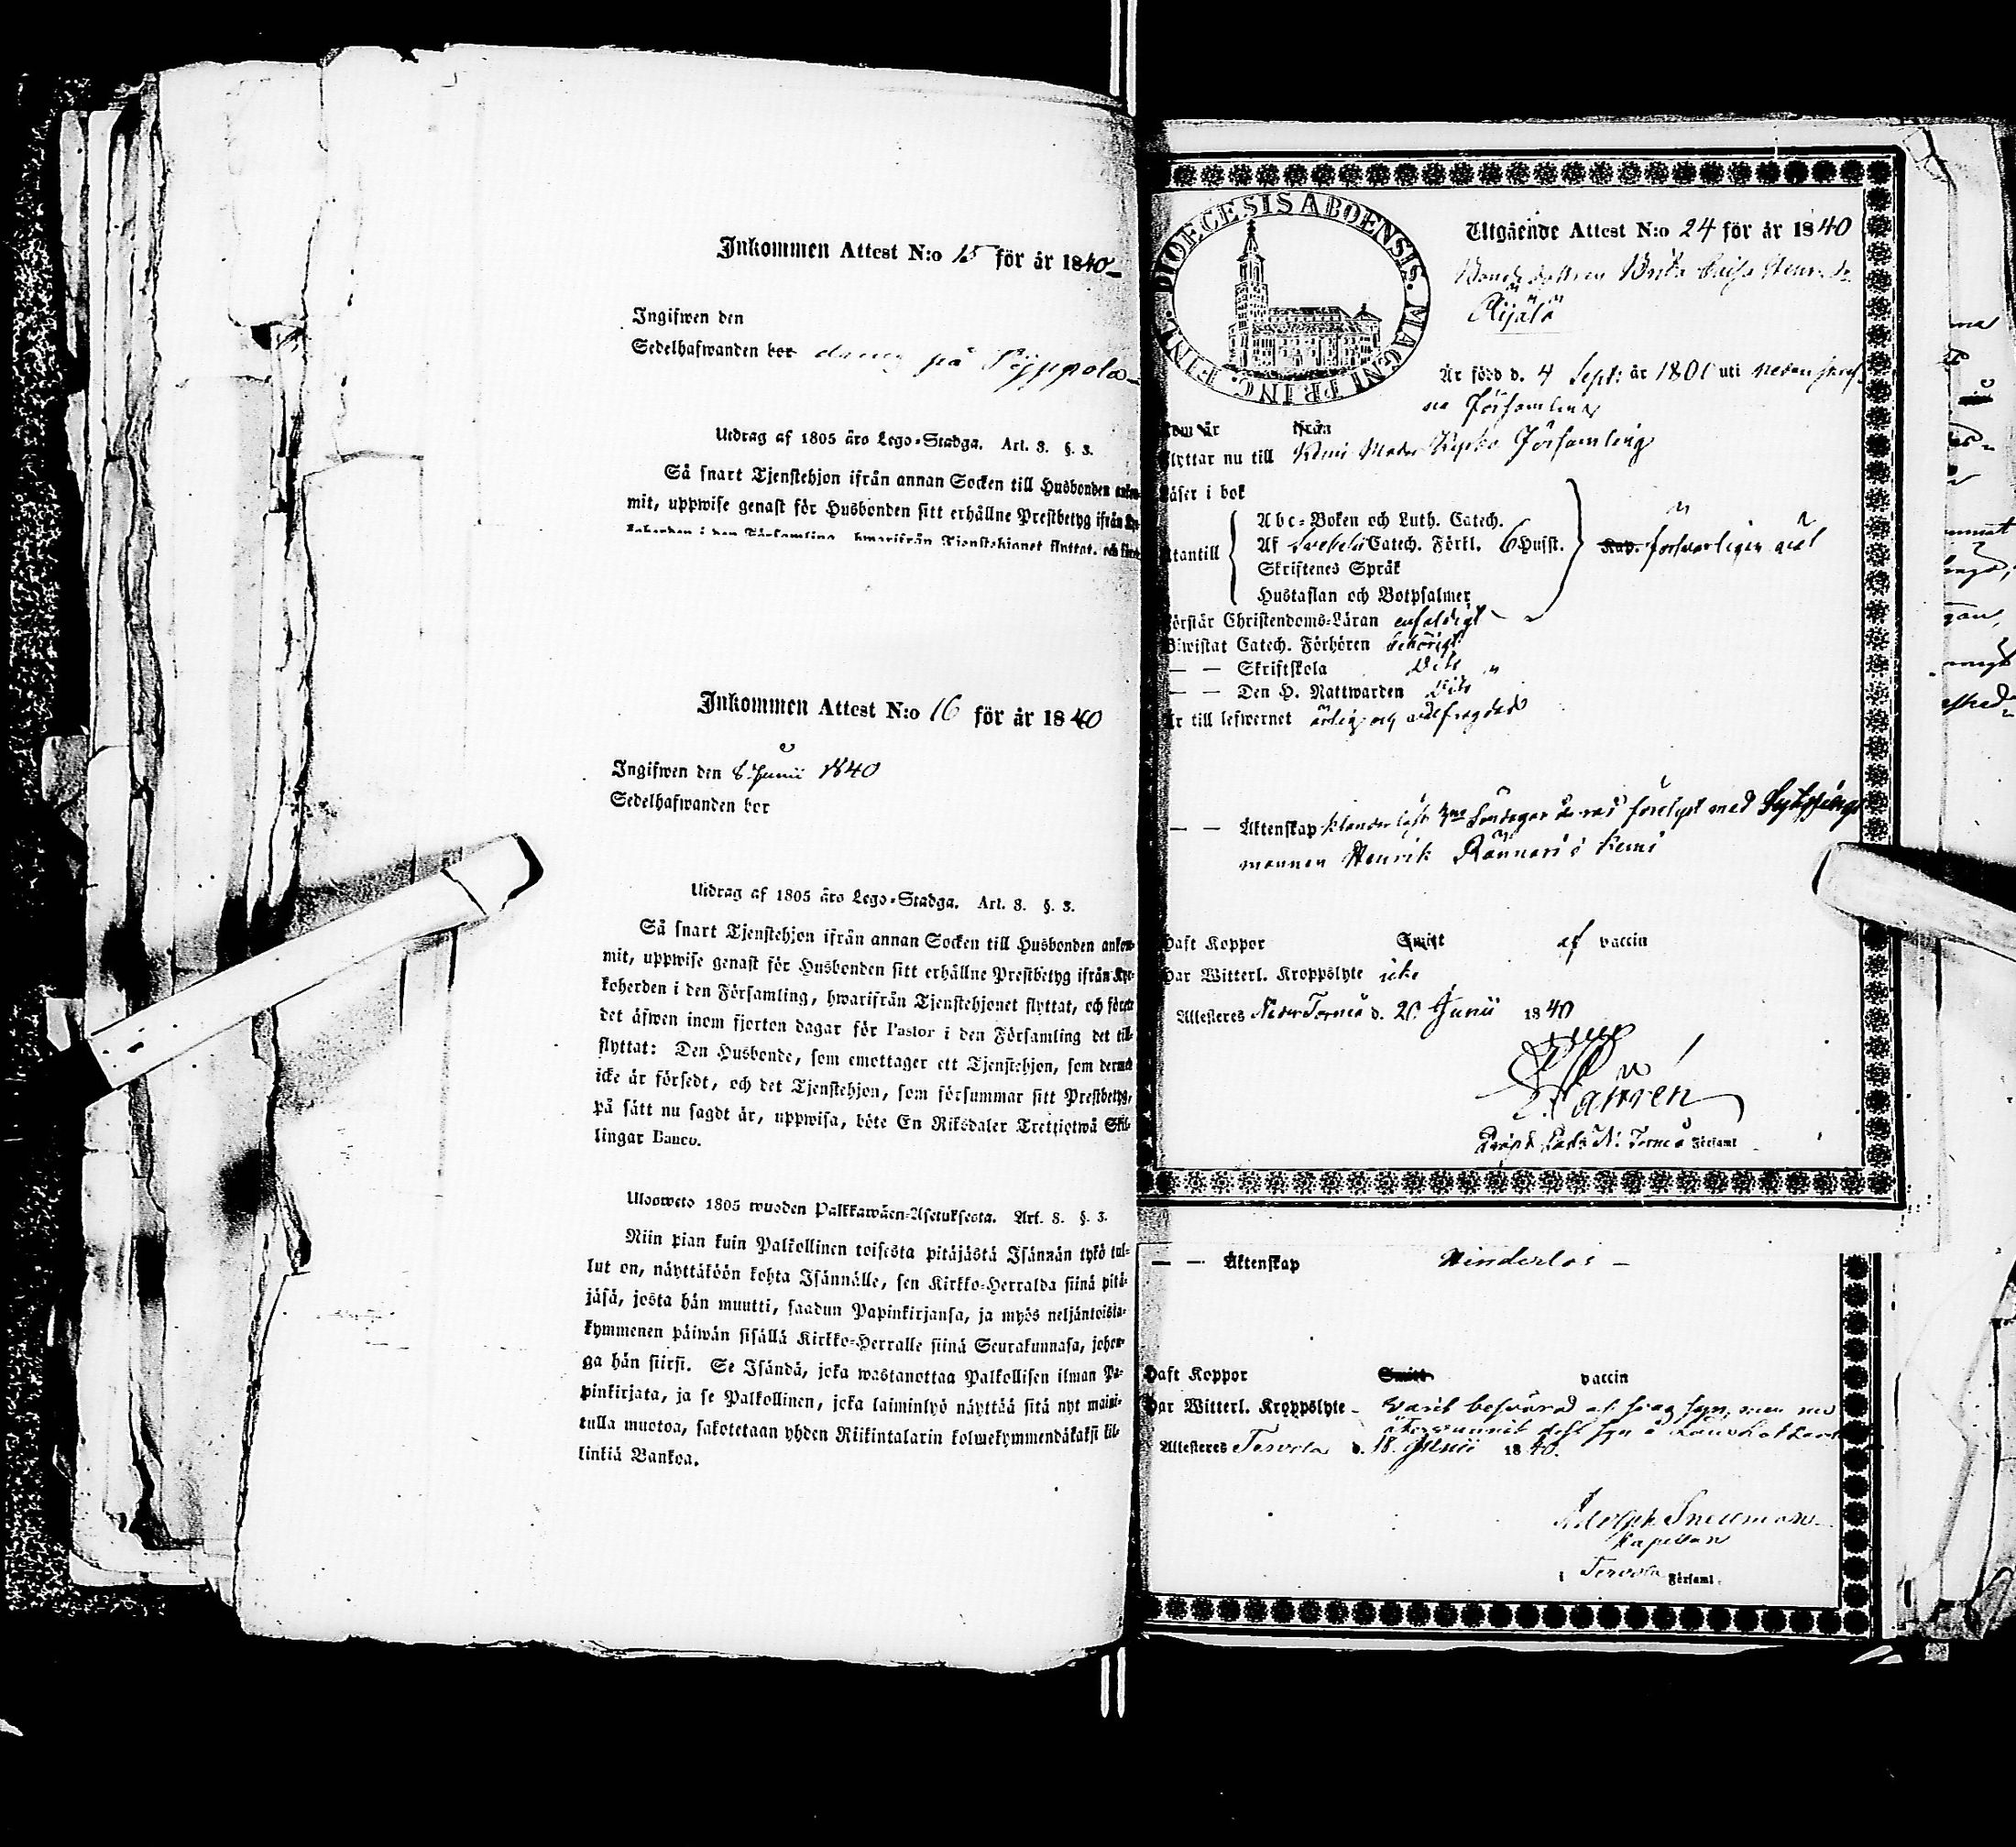 Inkommen Attest N:o 15 för år 1840
Ingifwen den
Sedelhafwanden bor på Pyppola
Utdrag af 1805 års Lego-Stadga. Art. 8. §. 3.
Så snart Tjenstehjon ifrån annan Socken till Husbonden
mit, uppwise genast för Husbonden sitt erhållne Prestbetyg ifrån
i den Församling, hwarifrån Tjenstehjonet flyttat, och
Inkommen Attest N:o 16 för år 1840
Ingifwen den 8 Junii 1840
Sedelhafwanden bor
Utdrag af 1805 års Lego-Stadga. Art. 8. §. 3.
Så snart Tjenstehjon ifrån annan Socken till Husbonden ankom-
mit, uppwise genast för Husbonden sitt erhållne Prestbetyg ifrån Kyr-
koherden i den Församling, hwarifrån Tjenstehjonet flyttat, och förete
det äfwen inom fjorton dagar för Pastor i den Församling det till-
flyttat: Den Husbonde, som emottager ett Tjenstehjon, som dermed
icke är försedt, och det Tjenstehjon, som försummar sitt Prestbetyg,
på sätt nu sagdt är, uppwisa, böte En Riksdaler Trettiotwå Skil-
lingar Banco.
Ulosweto 1805 wuoden Palkkawäen-Asetuksesta. Art. 8. §. 3.
Niin pian kuin Palkollinen toisesta pitäjästä Isännän tykö tul-
lut on, näyttäköön kohta Isännälle, sen Kirkko-Herralda siinä pitä-
jäsä, josta hän muutti, saadun Papinkirjansa, ja myös neljäntoista-
kymmenen päiwän sisällä Kirkko-Herralle siinä Seurakunnasa, johon-
ga hän siirsi. Se Isändä, joka wastanottaa Palkollisen ilman Pa-
pinkirjata, ja se Palkollinen, joka laiminlyö näyttää sitä nyt maini-
tulla muotoa, sakotetaan yhden Riikintalarin kolmekymmendäkaksi kil-
linkiä Bankoa.
DIOECESIS ABOENSIS. MAGNI PRINC. FINL.
Utgående Attest N:o 24 för år 1840
Brita Caisa
Är född d. 4 Sept: år 1801 uti
Församling
från
flyttar nu till Kemi Moder Kyrko Församling
Läser i bok
Abc-Boken och Luth. Catech.
Utantill Af Svebelii Catech. Förkl. 6 Husst. försvarligen
Skriftenes Språk
Hustaflan och Botpsalmer
Förstår Christendoms-Läran enfaldigt
Biwistat Catech. Förhören behörigt
— — Skriftskola dito
— — Den H. Nattwarden dito
Är till lefwernet ärlig och wälfrägdad
— — Äktenskap 3ne Söndagar förelyst med
mannen Henrik Rännäri i Kemi
Haft Koppor Smitt af vaccin
Har Witterl. Kroppslyte icke
Attesteres Neder Torneå d. 20 Junii 1840
N. Torneå Församl
— — Äktenskap Hinderlös
Haft Koppor Smitt vaccin
Har Witterl. Kroppslyte Varit besvärad af syn, men nu
Attesteres Tervola d. 18 Junii 1840.
Adolph Snellman
Kapellan
i Tervola Församl.